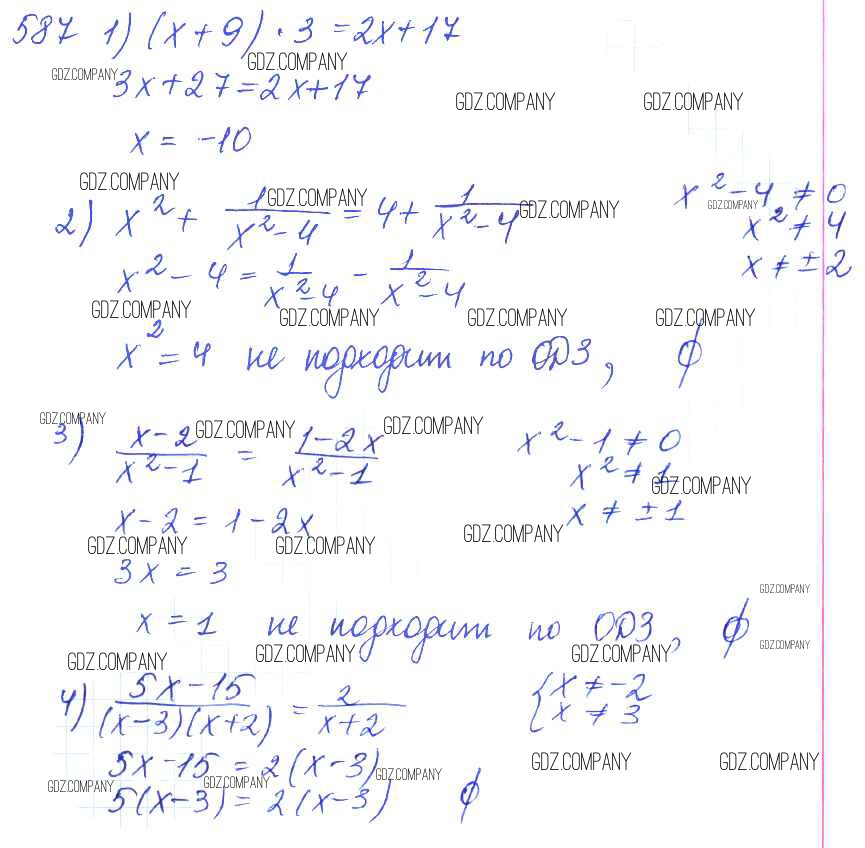 587 1) (x+9)·3=2x+17
GDZ.COMPANY
GDZ.COMPANY
3x+27=2x+17
GDZ.COMPANY GDZ.COMPANY
x = -10
GDZ.COMPANY
2) x²+ 1/(x²-4) = 4+ 1/(x²-4) x²-4≠0
GDZ.COMPANY GDZ.COMPANY GDZ.COMPANY
x²≠4
x²-4 = 1/(x²-4) - 1/(x²-4) x≠±2
GDZ.COMPANY GDZ.COMPANY GDZ.COMPANY GDZ.COMPANY
x²=4 не подходит по ОДЗ, ∅
GDZ.COMPANY GDZ.COMPANY GDZ.COMPANY
3) (x-2)/(x²-1) = (1-2x)/(x²-1) x²-1≠0
x²≠1
GDZ.COMPANY
x-2=1-2x x≠±1
GDZ.COMPANY GDZ.COMPANY GDZ.COMPANY
3x=3
GDZ.COMPANY
x=1 не подходит по ОДЗ, ∅
GDZ.COMPANY GDZ.COMPANY GDZ.COMPANY GDZ.COMPANY
4) (5x-15)/((x-3)(x+2)) = 2/(x+2) {x≠-2
x≠3
5x-15=2(x-3)
GDZ.COMPANY GDZ.COMPANY GDZ.COMPANY GDZ.COMPANY GDZ.COMPANY
5(x-3)=2(x-3) ∅